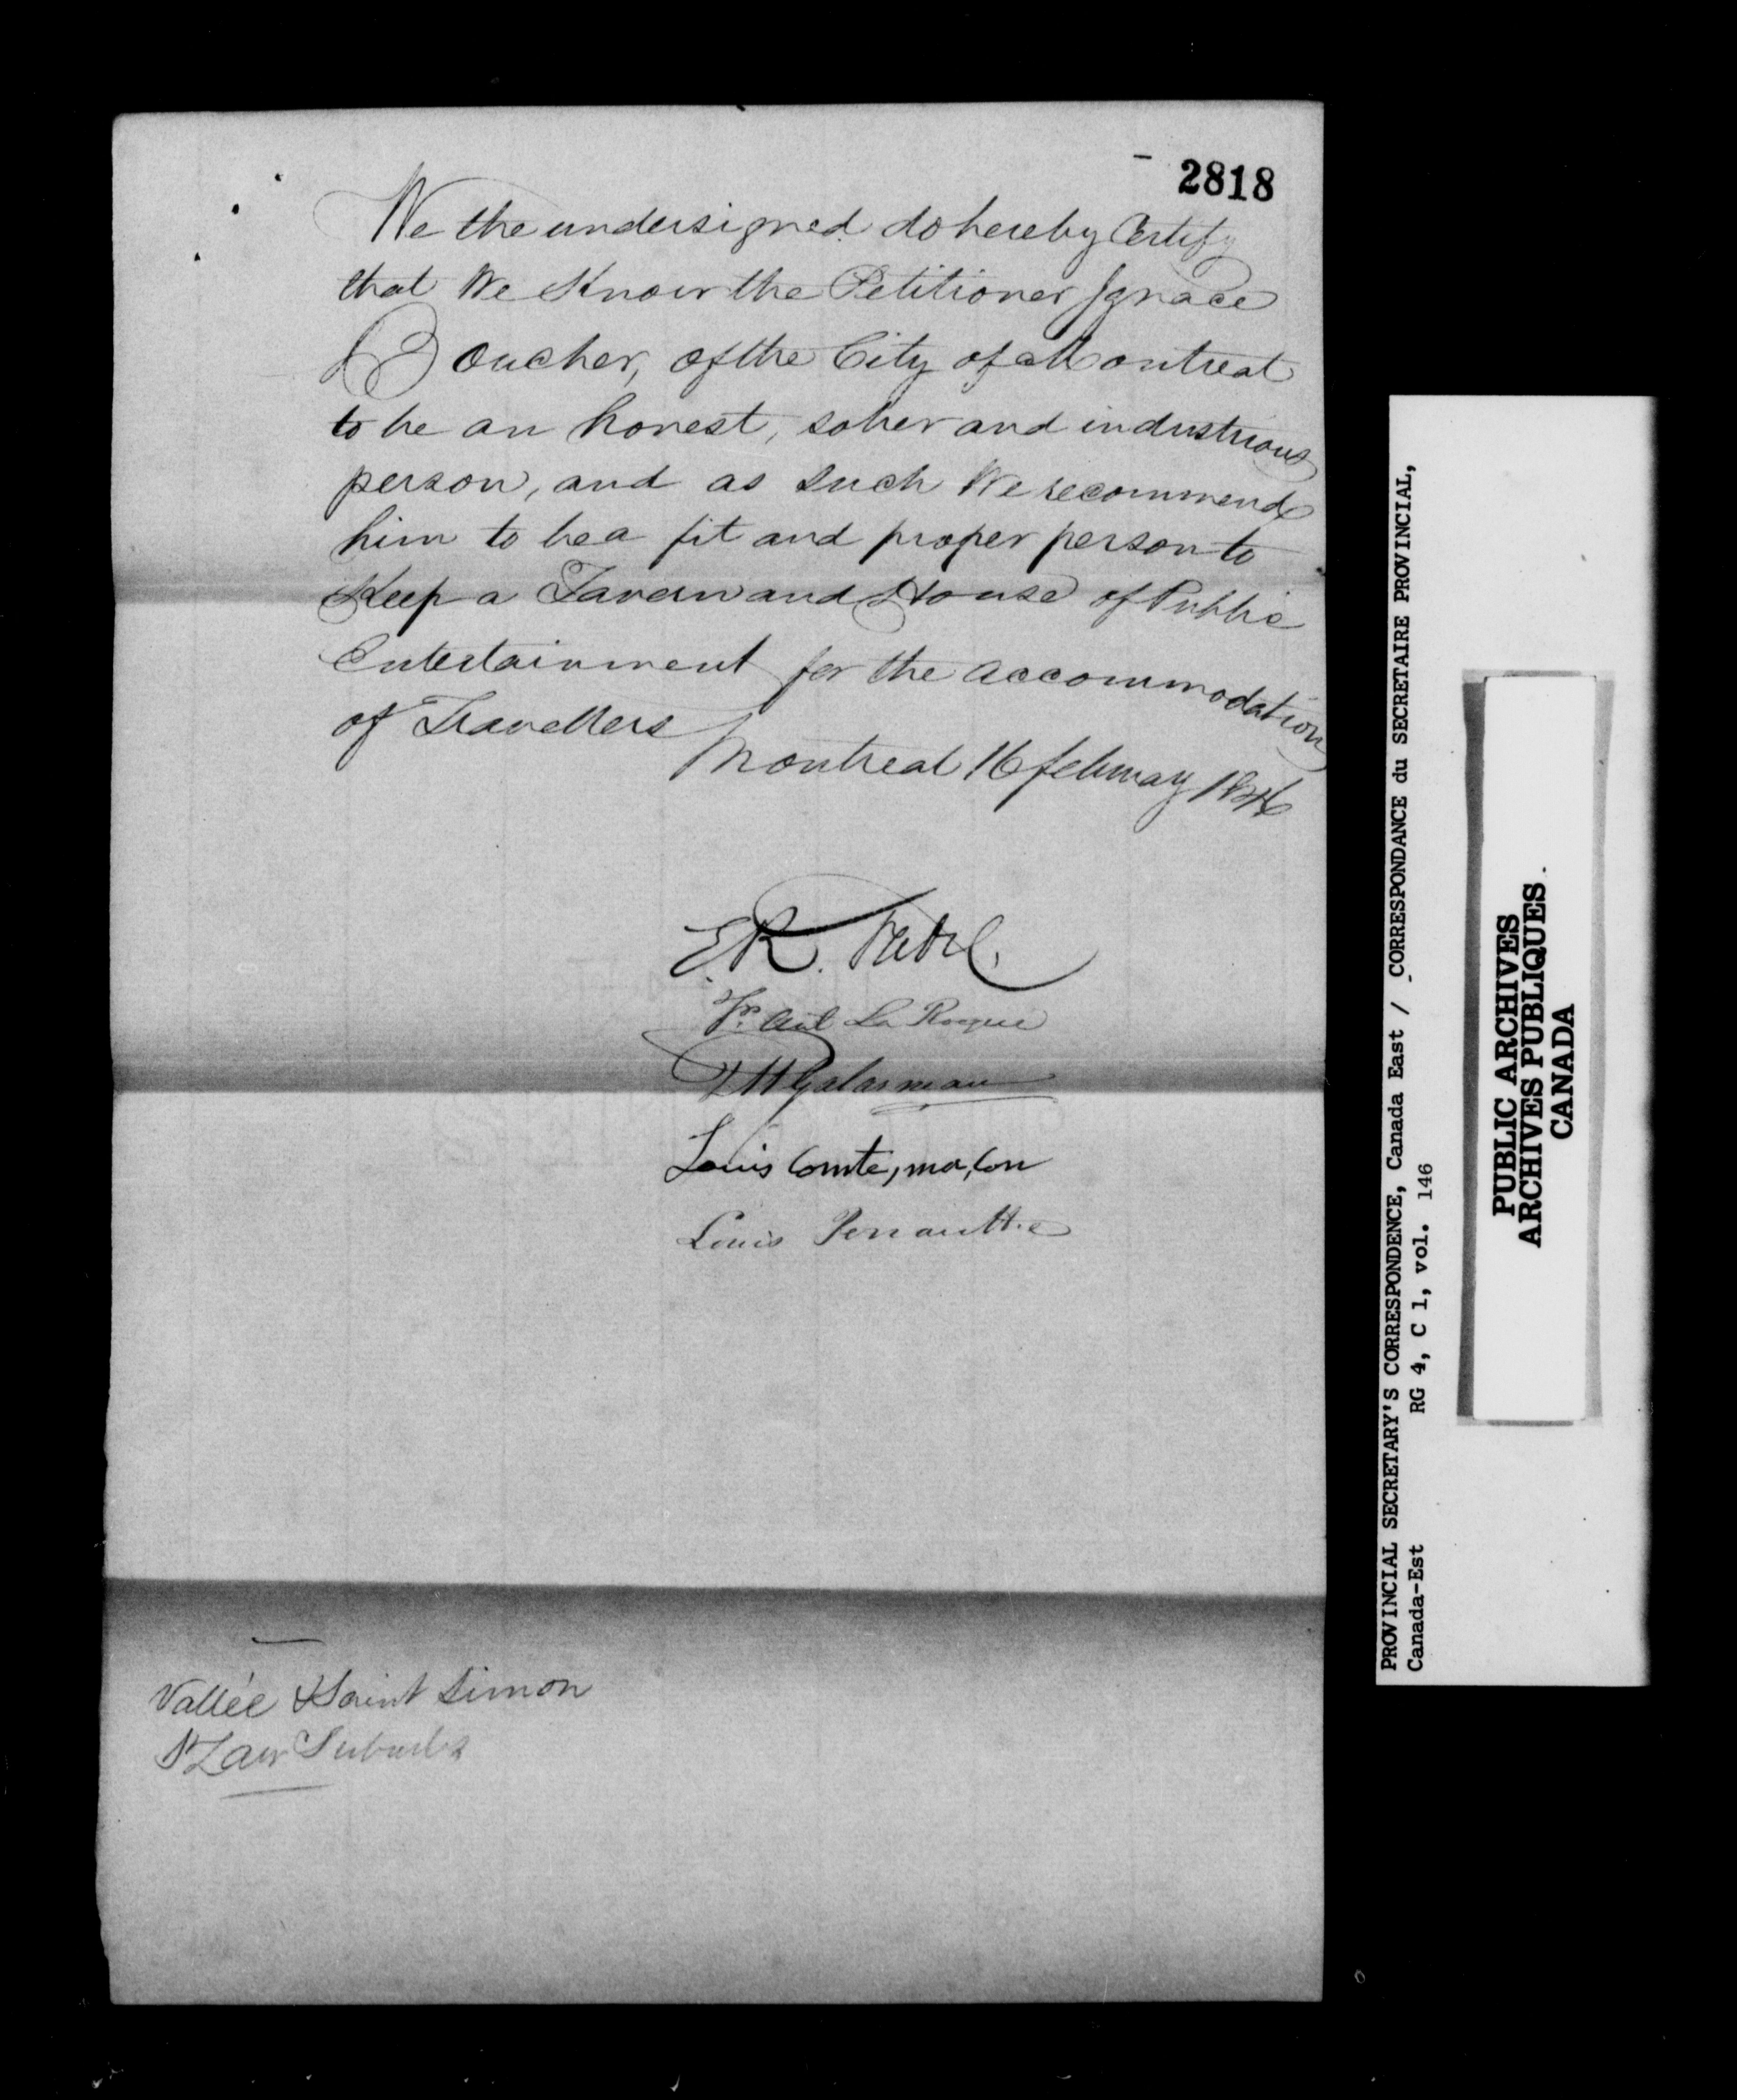 2818
We the undersigned do hereby Certify
that We Know the Petitioner Ignace
Boucher, of the City of Montreal
to be an honest, sober and industrious
person, and as such We recommend
him to be a fit and proper person to
Keep a Tavern and House of Public
Entertainment for the accommodation
of Travellers
Montreal 16 february 1846
E.R. Fabre
Fr. Ant La Rocque
Louis Comte, maçon
Louis Perrault
Vallée & Saint Simon
St Law Suburbs
PROVINCIAL SECRETARY'S CORRESPONDENCE, Canada East / CORRESPONDANCE du SECRETAIRE PROVINCIAL,
Canada-Est RG 4, C 1, vol. 146
PUBLIC ARCHIVES
ARCHIVES PUBLIQUES
CANADA